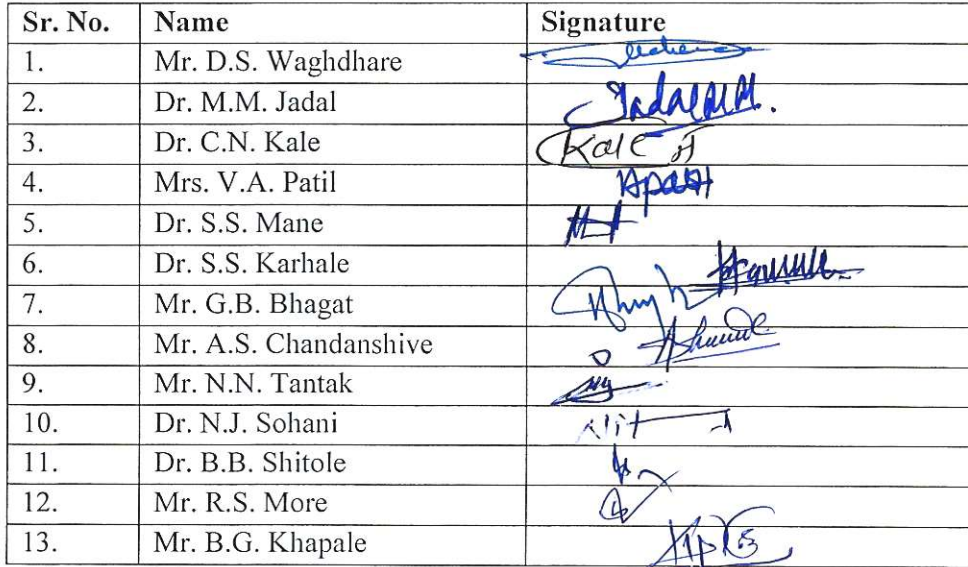 Sr. No. Name Signature
1. Mr. D.S. Waghdhare
2. Dr. M.M. Jadal Jadal M.M.
3. Dr. C.N. Kale Kale
4. Mrs. V.A. Patil
5. Dr. S.S. Mane
6. Dr. S.S. Karhale
7. Mr. G.B. Bhagat
8. Mr. A.S. Chandanshive
9. Mr. N.N. Tantak
10. Dr. N.J. Sohani
11. Dr. B.B. Shitole
12. Mr. R.S. More
13. Mr. B.G. Khapale